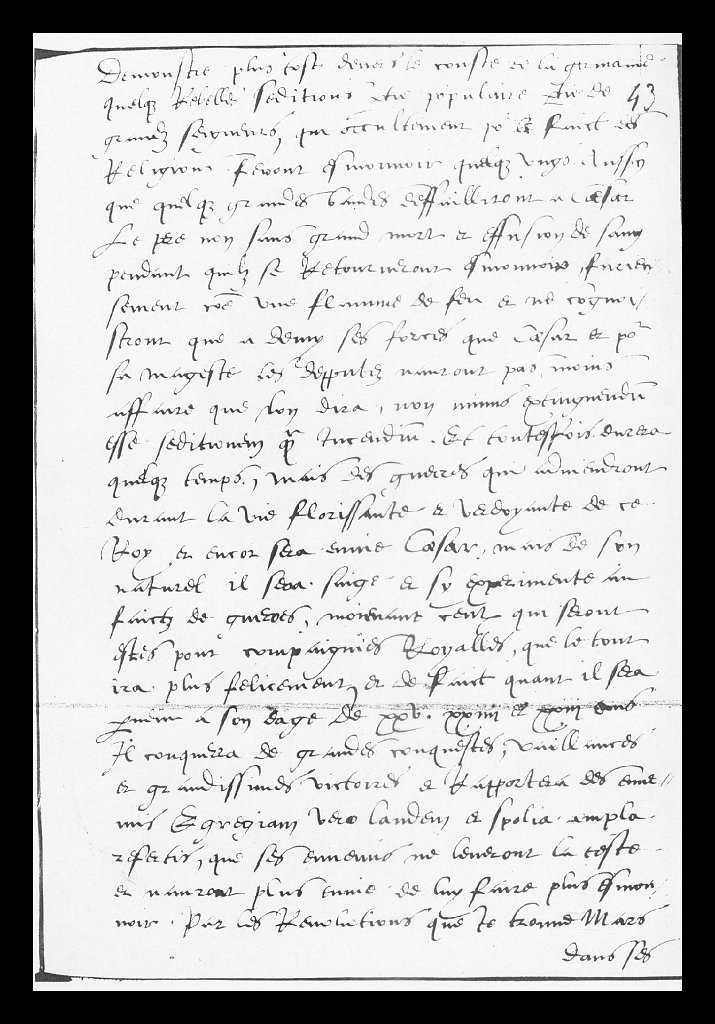 Demonstre plus tost devers le conste de la germanie
quelq Rebelles seditions populaire de 43
grandz seigneurs, qui occultement po le faict des
Religion feront esmonvoir quelq ungs Aussy
que quelq grandes bandes deffailliront a Cæsar
Le pere non sans grand mort et effusion de sang
pendant quilz se Retourneront esmonvoir, furieu
sement coe une flamme de feu et ne cognoi-
stront que a demy ses forces que Cæsar et por
sa mageste les depputez nauront pas moins
affaire que lon dira, non minus extinguendū
esse seditionem q̄ Incendiū. Et touteffois durera
quelq temps, mais des guerres qui adviendront
durant la vie florissante et verdoyante de ce
Roy et encor sera envie Cæsar, mais de son
naturel il sera saige et sy experimente au
faictz de guerres, moienant ceulx qui seront
estes pour compaignies Royalles, que le tout
ira plus felicement, et de faict quant il sera
parvenu a son eage de xxv. xxiiii et xxiii ans
Il conquerra de grandes conquestes, vaillances
et grandissimes victoires et Rapportera des enne-
mis Egregiam vero laudem et spolia ampla
refertis, que ses ennemis ne leveront la teste
et nauront plus envie de luy faire plus esmou-
voir. Par les Revolutions que Je trouve Mars
dans ses